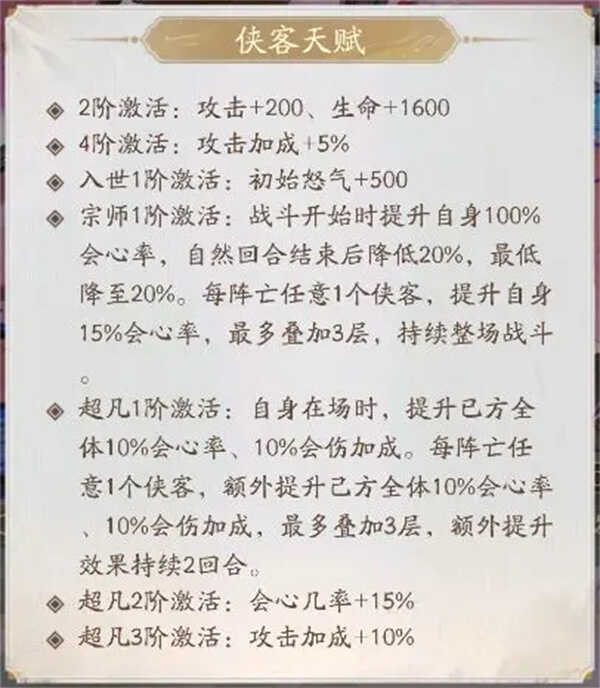 侠客天赋
2阶激活：攻击+200、生命+1600
4阶激活：攻击加成+5%
入世1阶激活：初始怒气+500
宗师1阶激活：战斗开始时提升自身100%
会心率，自然回合结束后降低20%，最低
降至20%。每阵亡任意1个侠客，提升自身
15%会心率，最多叠加3层，持续整场战斗
。
超凡1阶激活：自身在场时，提升己方全
体10%会心率、10%会伤加成。每阵亡任
意1个侠客，额外提升己方全体10%会心率
、10%会伤加成，最多叠加3层，额外提升
效果持续2回合。
超凡2阶激活：会心几率+15%
超凡3阶激活：攻击加成+10%